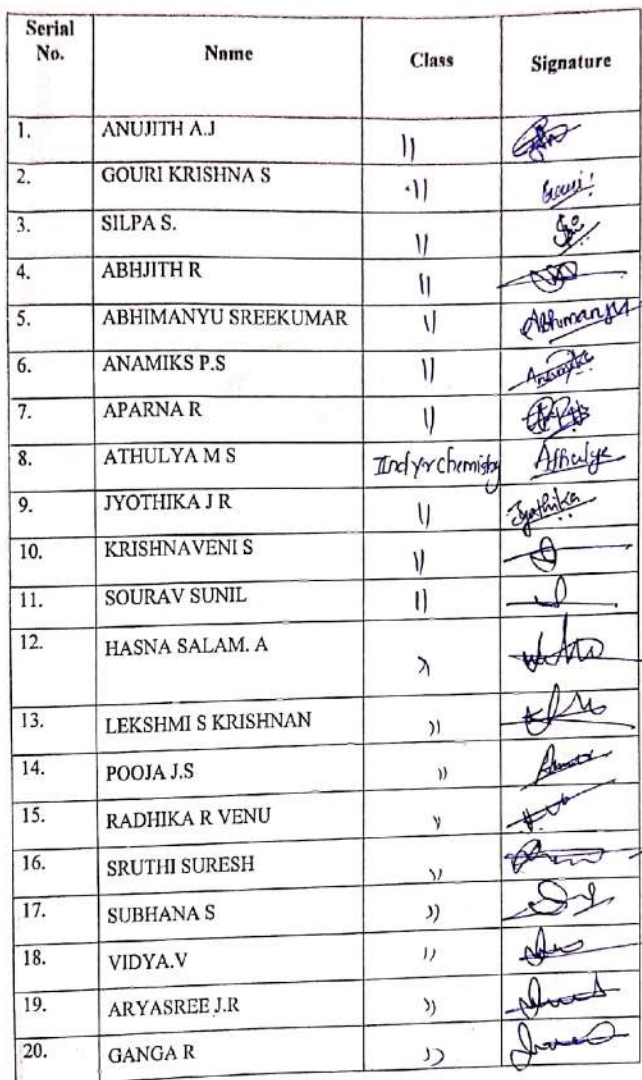 Serial No. Name Class Signature
1. ANUJITH A.J 〃
2. GOURI KRISHNA S 〃 Gouri
3. SILPA S. 〃
4. ABHJITH R 〃
5. ABHIMANYU SREEKUMAR 〃 Abhimanyu
6. ANAMIKS P.S 〃 Anamika
7. APARNA R 〃
8. ATHULYA M S IInd yr chemistry Athulya
9. JYOTHIKA J R 〃 Jyothika
10. KRISHNAVENI S 〃
11. SOURAV SUNIL 〃
12. HASNA SALAM. A 〃
13. LEKSHMI S KRISHNAN 〃
14. POOJA J.S 〃
15. RADHIKA R VENU 〃
16. SRUTHI SURESH 〃
17. SUBHANA S 〃
18. VIDYA.V 〃
19. ARYASREE J.R 〃
20. GANGA R 〃